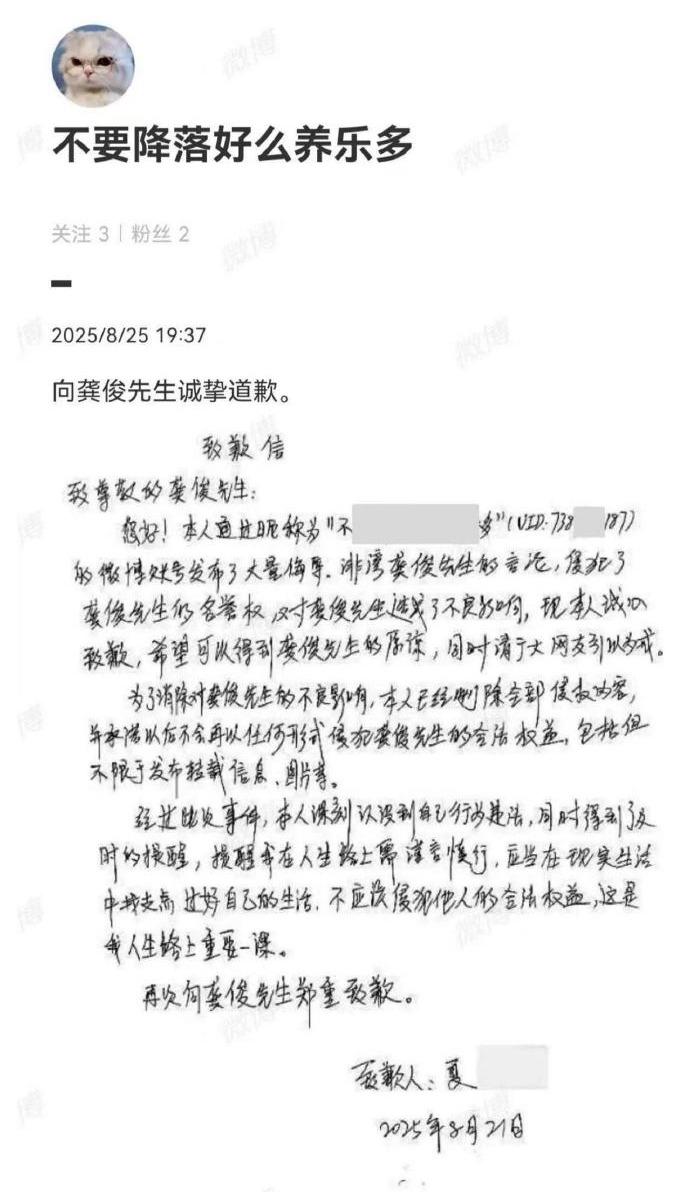 不要降落好么养乐多
关注 3 | 粉丝 2
2025/8/25 19:37
向龚俊先生诚挚道歉。
致歉信
致尊敬的龚俊先生：
您好！本人通过昵称为"不 多"(UID:738 187)
的微博账号发布了大量侮辱、诽谤龚俊先生的言论，侵犯了
龚俊先生的名誉权，又对龚俊先生造成了不良影响，现本人诚心
致歉，希望可以得到龚俊先生的原谅，同时请广大网友引以为戒。
为了消除对龚俊先生的不良影响，本人已经删除全部侵权内容，
并承诺以后不会再以任何形式侵犯龚俊先生的合法权益，包括但
不限于发布转载信息、图片等。
经过此次事件，本人深刻认识到自己行为违法，同时得到了及
时的提醒，提醒我在人生路上需谨言慎行，应当在现实生活
中找支点过好自己的生活，不应该侵犯他人的合法权益，这是
我人生路上重要一课。
再次向龚俊先生郑重致歉。
致歉人：夏
2025年8月21日
微博
微博
微博
微博
微博
微博
微博